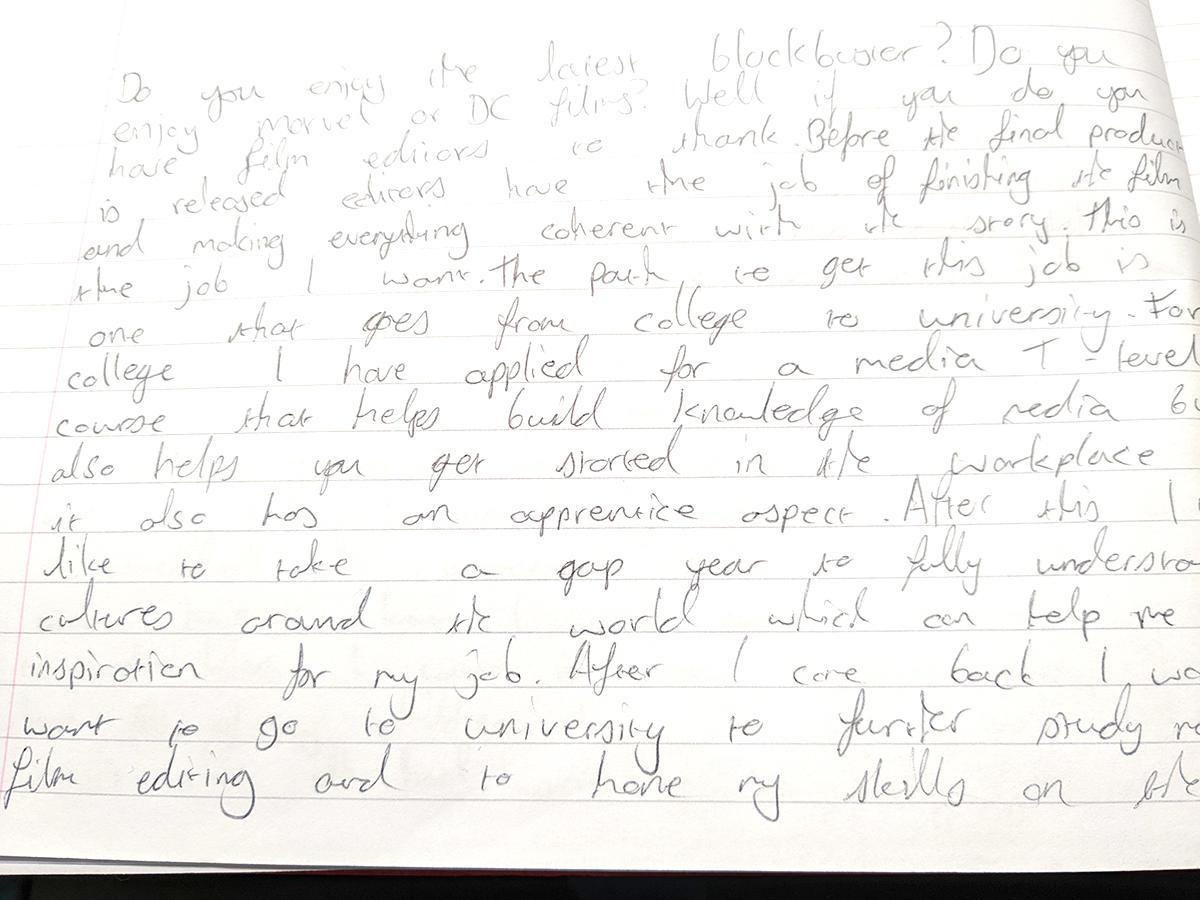 Do you enjoy the latest blockbuster? Do you
enjoy marvel or DC films? Well if you do you
have film editors to thank. Before the final product
is released editors have the job of finishing the film
and making everything coherent with the story. This is
the job I want. The path to get this job is
one that goes from college to university. For
college I have applied for a media T-level
course that helps build knowledge of media
also helps you get started in the workplace
it also has an apprentice aspect. After this I
like to take a gap year to fully
cultures around the world which can help me
inspiration for my job. After I come back I
want to go to university to further study
film editing and to hone my skills on the